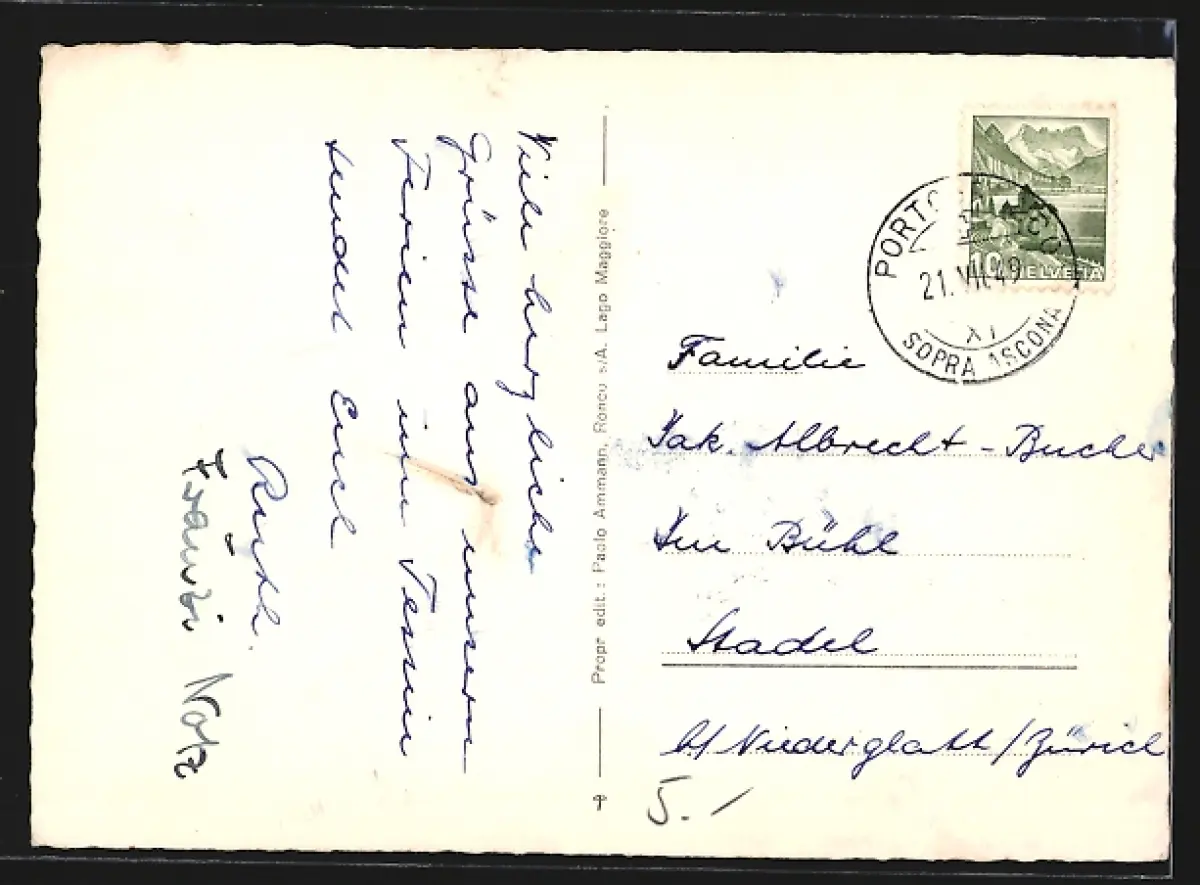 Viele herzliche
Grüsse aus unsern
Ferien im Tessin
sendet Euch
Ruth.
Fränzi Notz
Propr. edit.: Paolo Ammann, Ronco s/A. Lago Maggiore
10 HELVETIA
PORTO RONCO
21. VII. 49
XI
SOPRA ASCONA
Familie
Jak. Albrecht-Bucher
Im Bühl
Stadel
b/Niederglatt/Zürich
5.-